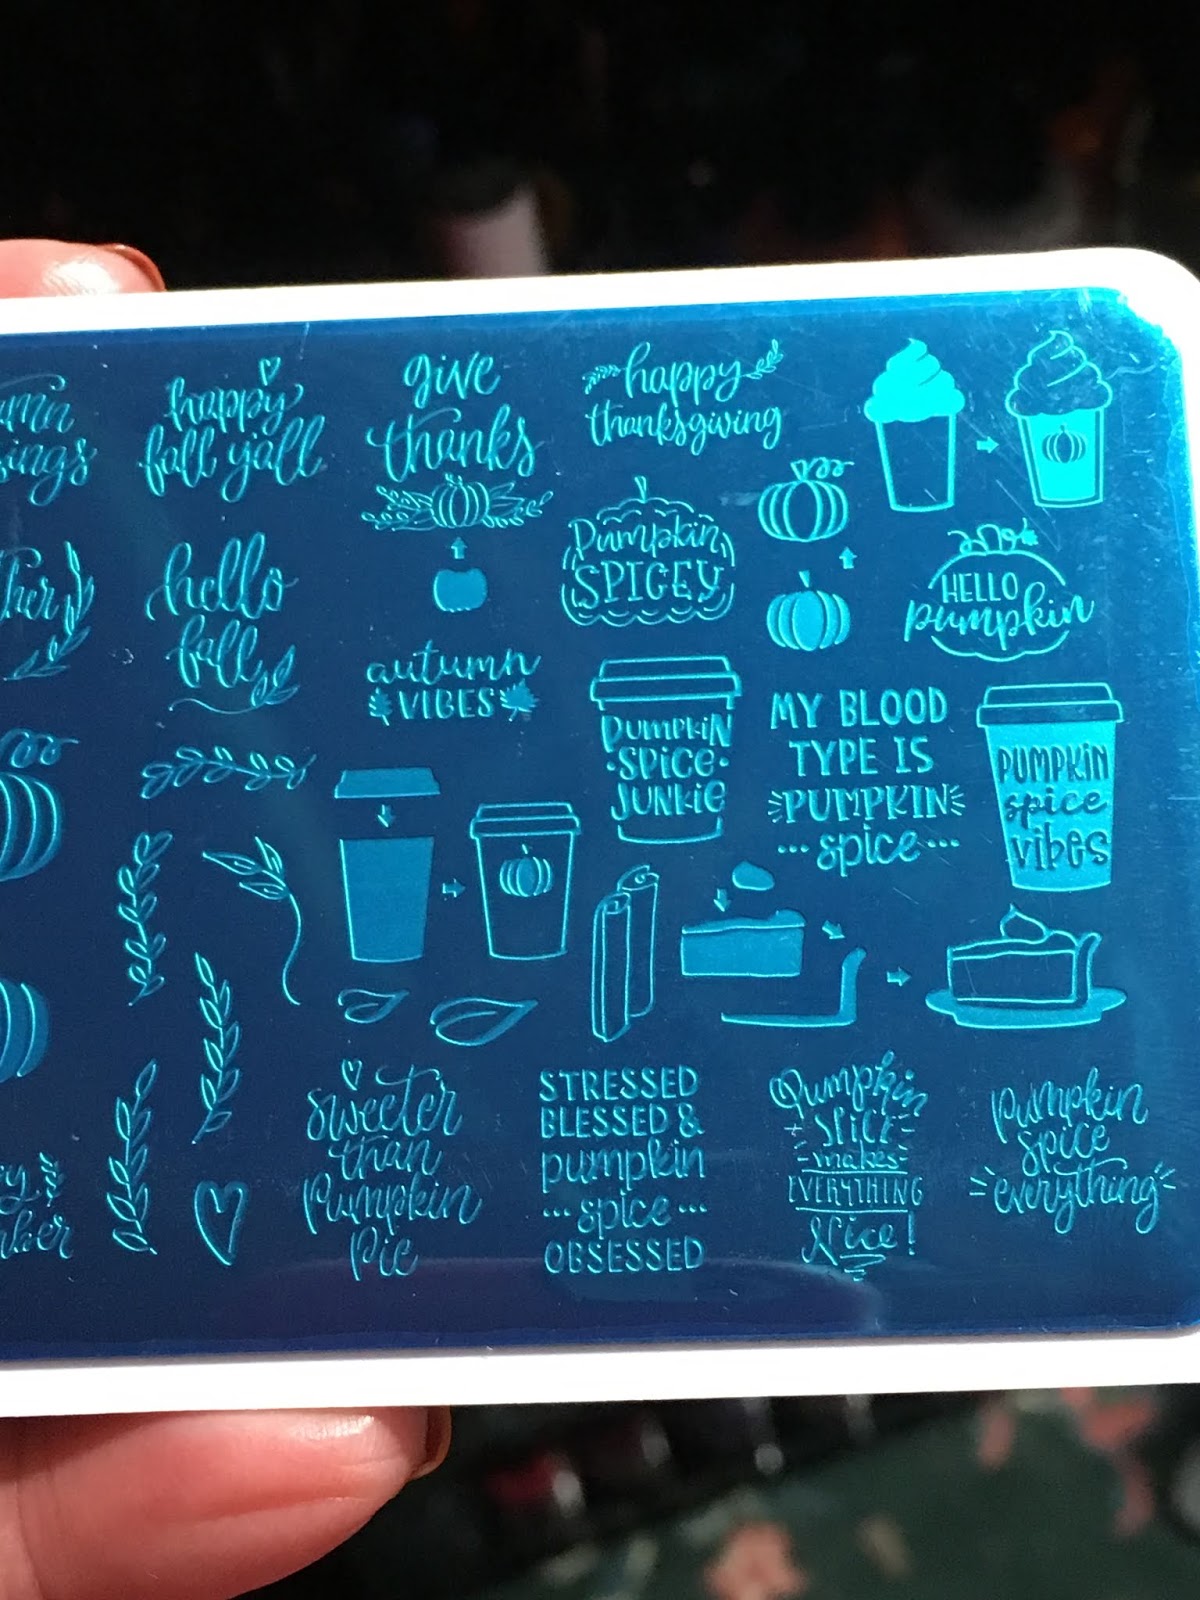 happy
fall y'all
give
thanks
happy
thanksgiving
hello
fall
Pumpkin
SPICEY
HELLO
pumpkin
autumn
VIBES
PUMPKIN
SPICE
JUNKIE
MY BLOOD
TYPE IS
PUMPKIN
... spice ...
PUMPKIN
spice
vibes
sweeter
than
Pumpkin
Pie
STRESSED
BLESSED &
pumpkin
... spice ...
OBSESSED
Pumpkin
SPICE
makes
EVERYTHING
Nice!
pumpkin
spice
everything